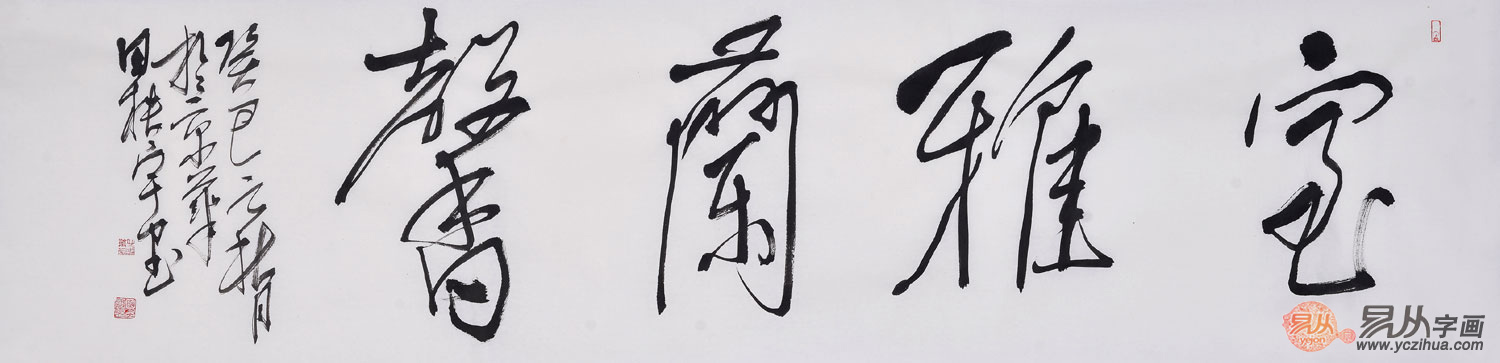 室雅蘭馨
癸巳之秋月
於京華
田 書
易从
易从字画
www.yczihua.com